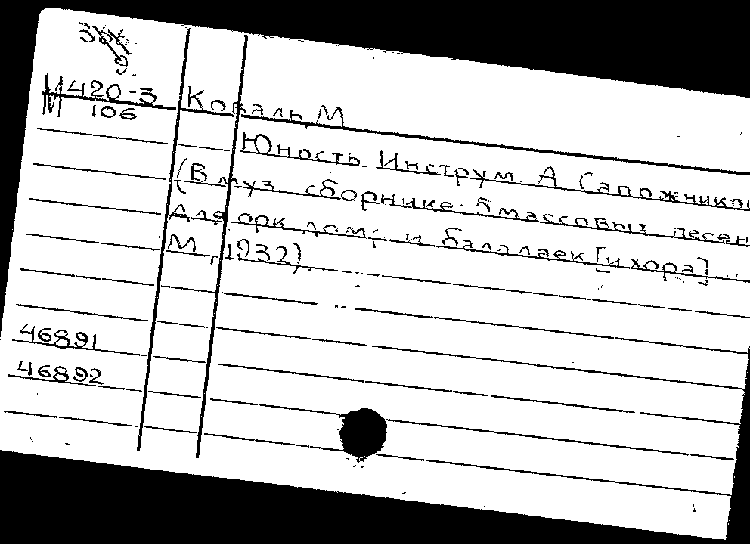 М 420-3
106
Коваль М
Юность Инструм. А Сапожников
(В муз. сборнике: 5 массовых песен
Для орк дом. и балалаек [и хора]
М., 1932).
46891
46892